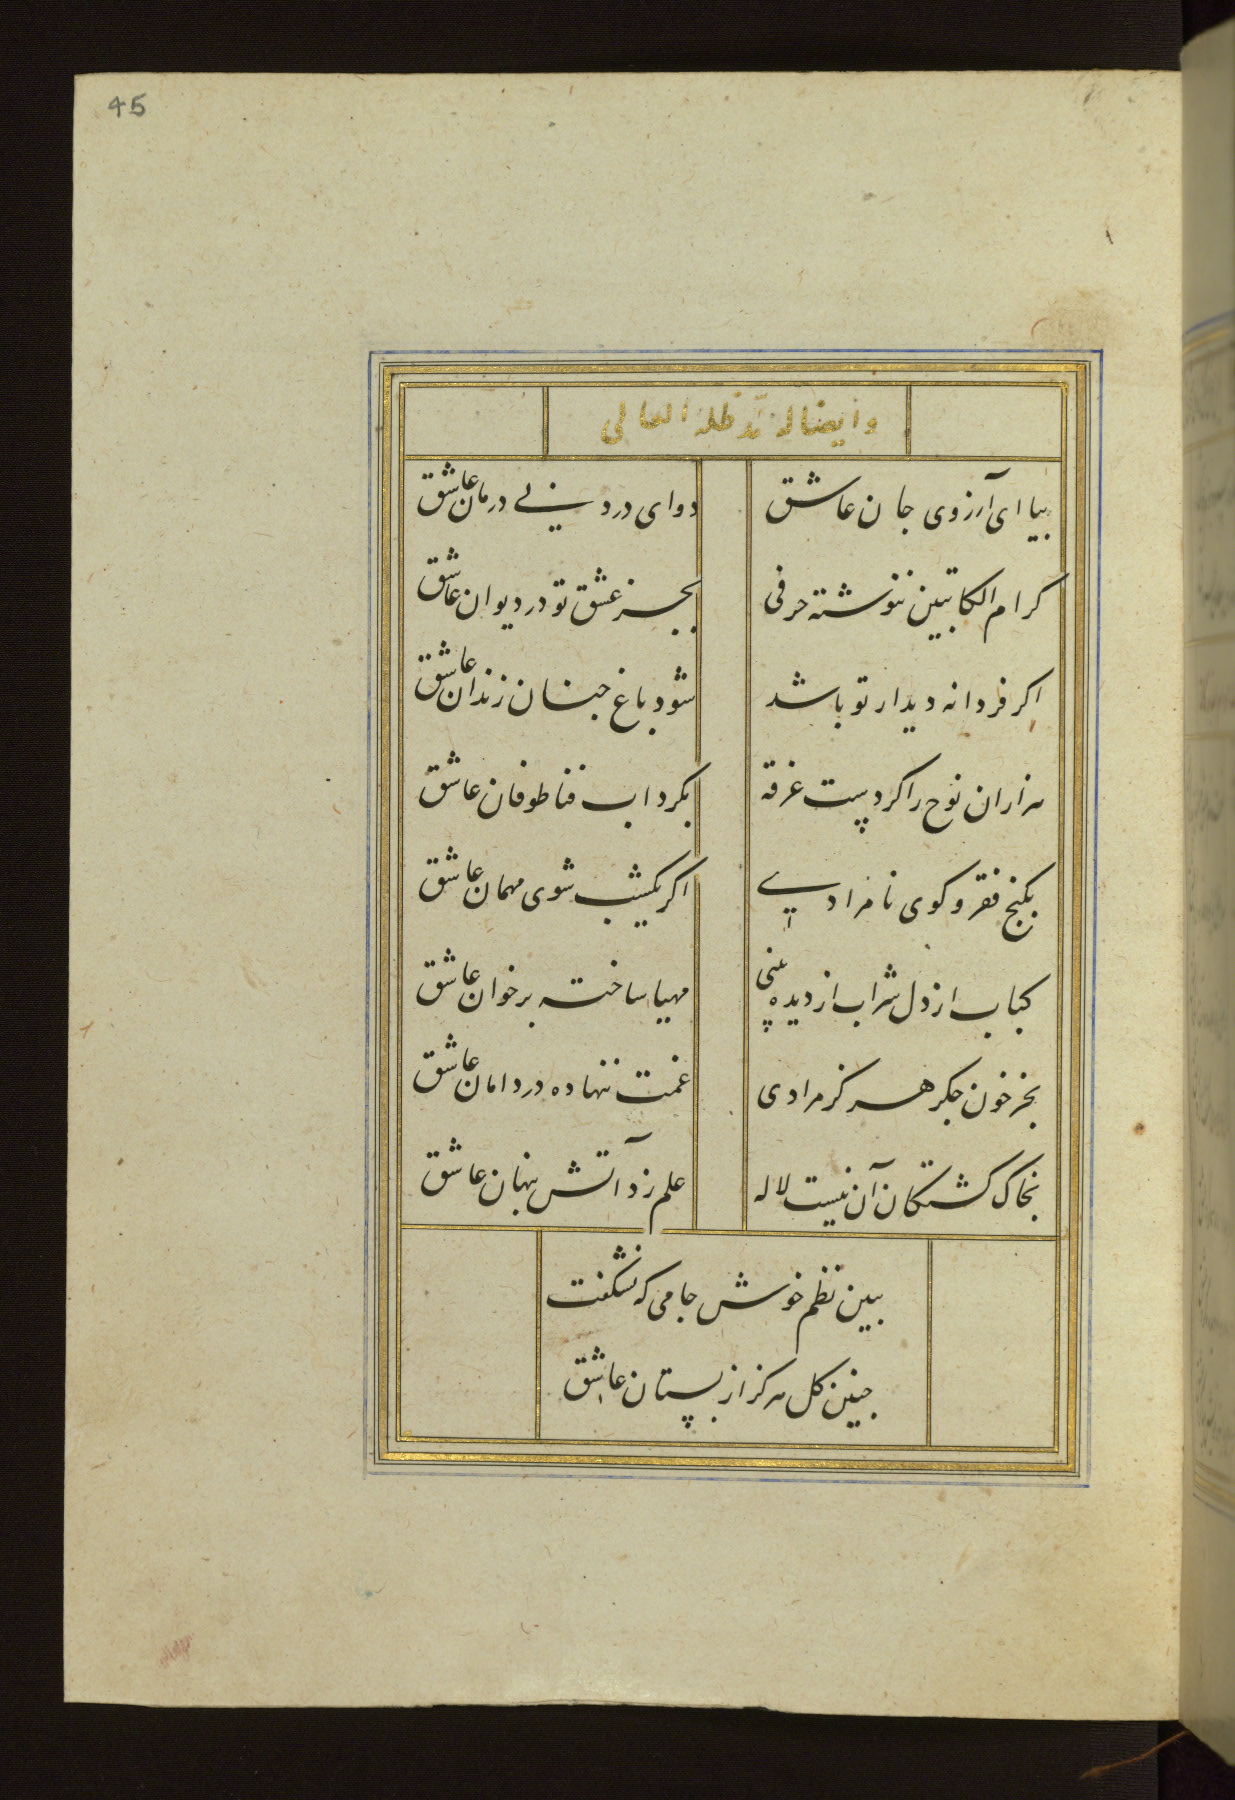 45
وایضا له مد ظله العالی
بیا ای آرزوی جان عاشق
دوای درد بی درمان عاشق
کرام الکاتبین ننوشته حرفی
بجز عشق تو در دیوان عاشق
اکر فردا نه دیدار تو باشد
شود باغ جنان زندان عاشق
هزاران نوح را کردست غرقه
بکرداب فنا طوفان عاشق
بکنج فقر و کوی نامرادی
اکر یکشب شوی مهمان عاشق
کباب از دل شراب از دیده بینی
مهیا ساخته بر خوان عاشق
بجز خون جکر هرکز مرادی
غمت ننهاده در دامان عاشق
بخاک کشتکان آن نیست لاله
علم زد آتش پنهان عاشق
ببین نظم خوش جامی که نشکفت
چنین کل هرکز از بستان عاشق